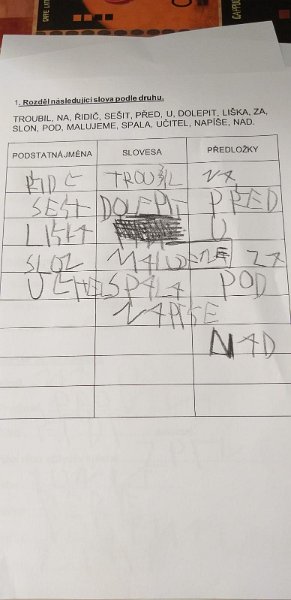 1. Rozděl následující slova podle druhu.
TROUBIL, NA, ŘIDIČ, SEŠIT, PŘED, U, DOLEPIT, LIŠKA, ZA,
SLON, POD, MALUJEME, SPALA, UČITEL, NAPÍŠE, NAD.
PODSTATNÁ JMÉNA SLOVESA PŘEDLOŽKY
TROUBIL NA
DOLEPIT PŘED
LIŠKA U
SLON MALUJEME ZA
UČITEL SPALA POD
NAPÍŠE
NAD